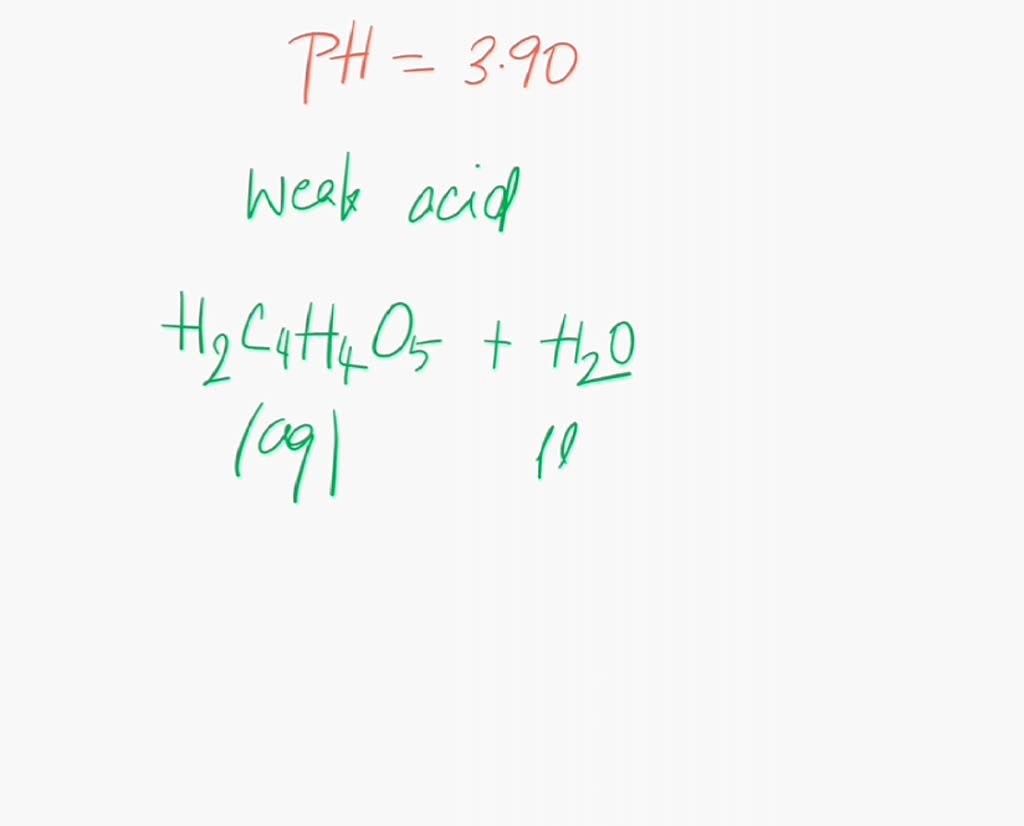 PH = 3.90
Weak acid
H₂C₄H₄O₅ + H₂O
(aq) (l